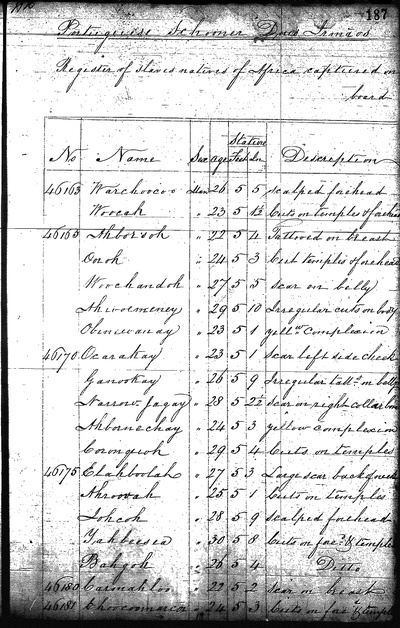 187
Portuguese Schooner Dous Irmãos
Register of Slaves natives of Africa captured on
board
Stature
No Name Sex age Feet In Description
46163 Warchoocoo Man 26 5 5 scalped forehead
Wooeah " 23 5 4½ Cuts on temples & forehead
46165 Ahborsoh " 22 5 4 Tattooed on breast
Oooh " 24 5 3 Cut temples & forehead
Woochandoh " 27 5 5 scar on belly
Ahwoemeney " 29 5 10 Irregular cuts on body
" 23 5 1 yellw Complexion
46170 Ocarakay " 23 5 1 Scar left side cheek
Ganookay " 26 5 9 Irregular tattd on belly
Narrow Jagay " 28 5 2½ Scar on right collar bone
Ahbornechay " 24 5 3 yellow complexion
" 29 5 4 Cuts on temples
46175 Etahboolah " 27 5 3 Large scar back of neck
Ahroowah " 25 5 1 Cuts on temples
Lohcoh " 28 5 9 scalped forehead
" 30 5 8 Cuts on fore'd & temples
Bahgoh " 26 5 4 Ditto
46180 " 22 5 2 Scar on breast
46181 " 24 5 3 Cuts on fore'd & temples